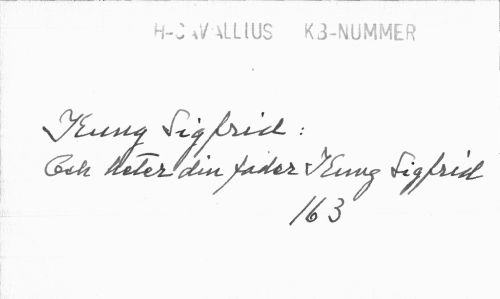 H-CAVALLIUS KB-NUMMER
Kung Sigfrid:
Och heter din fader Kung Sigfrid
163